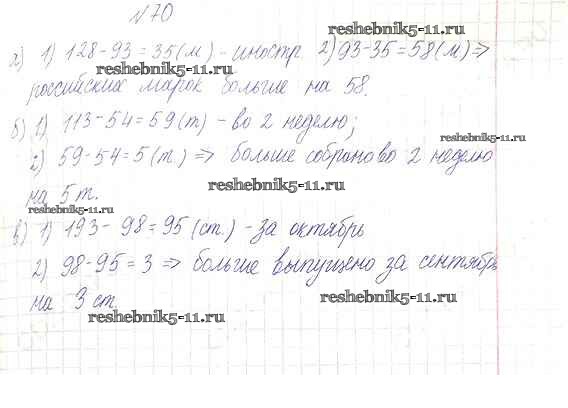 №70
а) 1) 128-93=35(м) - иностр. 2) 93-35=58(м) ⇒
российских марок больше на 58.
б) 1) 113-54=59(т) - во 2 неделю;
2) 59-54=5(т.) ⇒ больше собрано во 2 неделю
на 5 т.
в) 1) 193-98=95(ст.) - за октябрь
2) 98-95=3 ⇒ больше выпущено за сентябрь
на 3 ст.
reshebnik5-11.ru
reshebnik5-11.ru
reshebnik5-11.ru
reshebnik5-11.ru
reshebnik5-11.ru
reshebnik5-11.ru
reshebnik5-11.ru